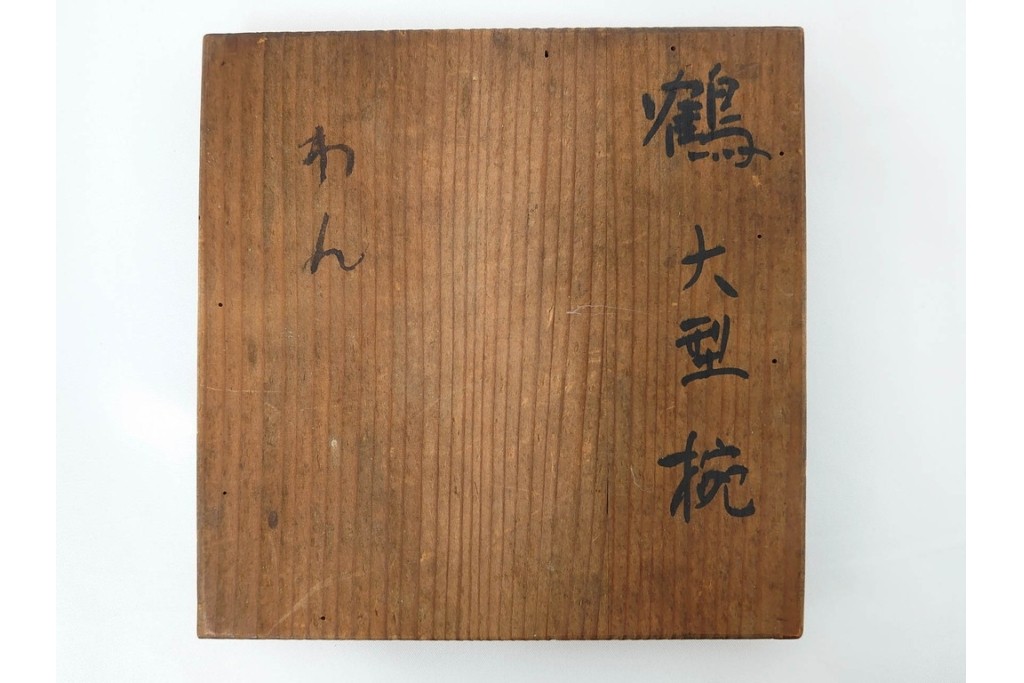 鶴大型椀
わん